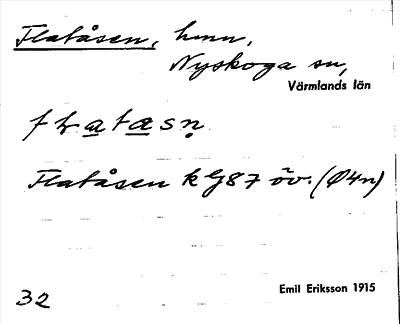 Flatåsen, hmn,
Nyskoga sn,
Värmlands län
Flatåsen k G87 öv. (Ø4n)
32
Emil Eriksson 1915